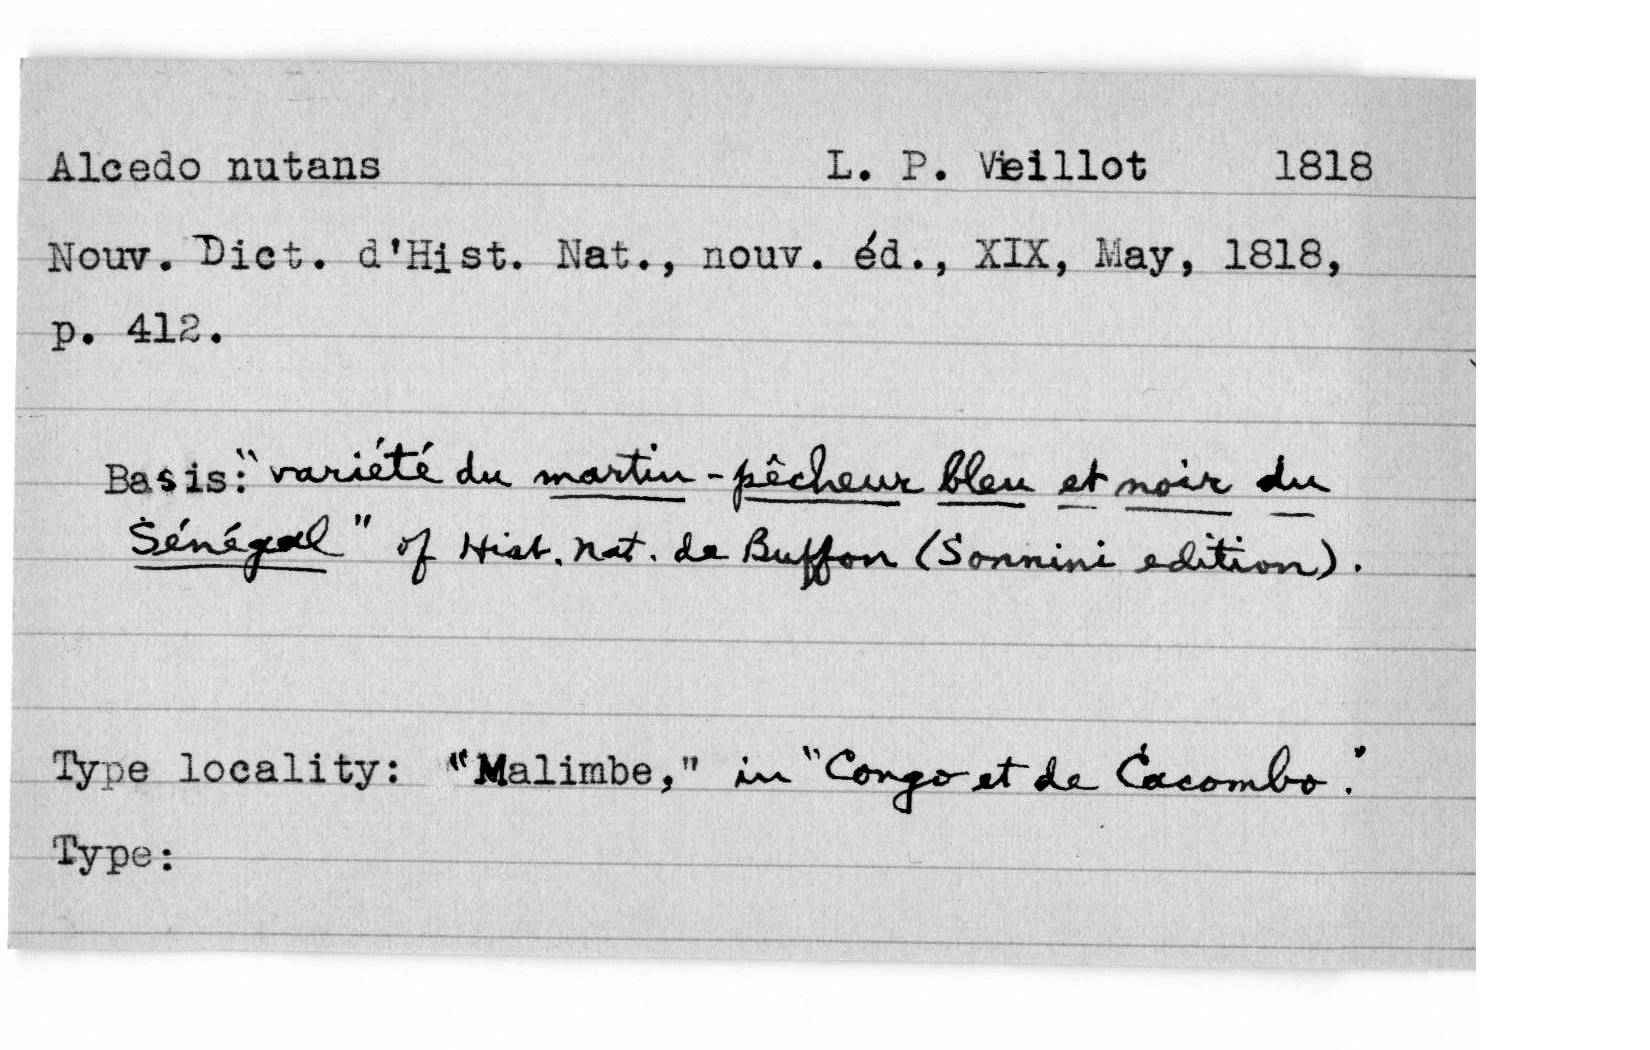 Alcedo nutans L. P. Vieillot 1818
Nouv. Dict. d'Hist. Nat., nouv. éd., XIX, May, 1818,
p. 412.
Basis: "variété du martin-pêcheur bleu et noir du
Sénégal" of Hist. nat. de Buffon (Sonnini edition).
Type locality: "Malimbe," in "Congo et de Cacombo."
Type: